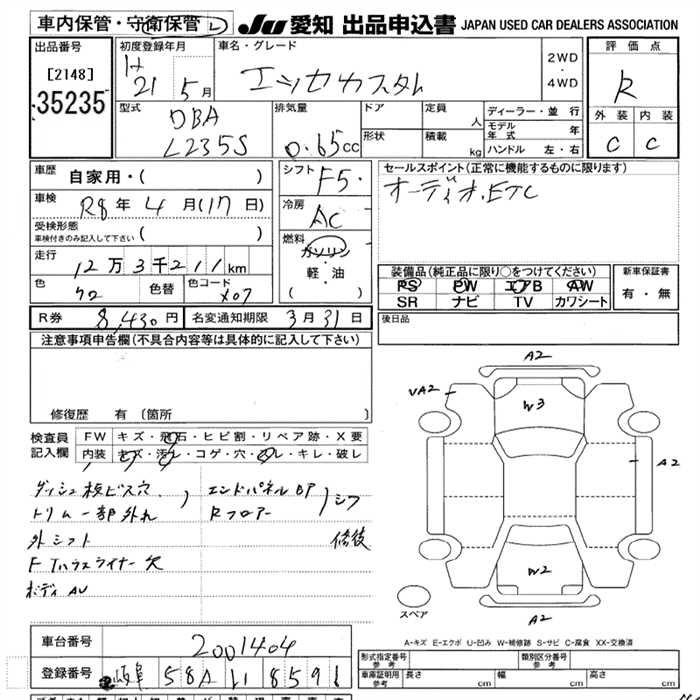 車内保管・守衛保管 L
JU 愛知 出品申込書 JAPAN USED CAR DEALERS ASSOCIATION
出品番号
[2148]
35235
初度登録年月
H
21 5 月
車名・グレード
エッセカスタム
2WD
・
4WD
評価点
R
外装 内装
C C
型式
DBA
L235S
排気量
0.65 cc
ドア
形状
定員
人
積載
kg
ディーラー・並行
モデル年式 年
ハンドル 左・右
車歴
自家用・( )
車検
R8 年 4 月 (17 日)
受検形態
車検付きのみ記入して下さい ( )
走行
12 万 3 千 211 km
色
クロ
色替
色コード
X07
シフト
F5
冷房
AC
燃料
ガソリン
・
軽・油
( )
セールスポイント(正常に機能するものに限ります)
オーディオ.ETC
装備品(純正品に限り○をつけてください)
PS PW エアB AW
SR ナビ TV カワシート
新車保証書
有・無
後日品
R券 8,430 円 名変通知期限 3 月 31 日
注意事項申告欄(不具合内容等は具体的に記入して下さい)
修復歴 有 (箇所 )
検査員
記入欄
FW キズ・飛石・ヒビ割・リペア跡・X要
内装 キズ・汚レ・コゲ・穴・スレ・キレ・破レ
ダッシュ板ビス穴
トリム一部外れ
外シフト
ボディAU
エンドパネル
Rフロアー
修後
A2
VA2
W3
A2
W2
A2
スペア
A-キズ E-エクボ U-凹み W-補修跡 S-サビ C-腐食 XX-交換済
車台番号
2001404
登録番号
岐阜 58A 859
形式指定番号
類別区分番号
車庫証明用参考 長さ cm 幅 cm 高さ cm